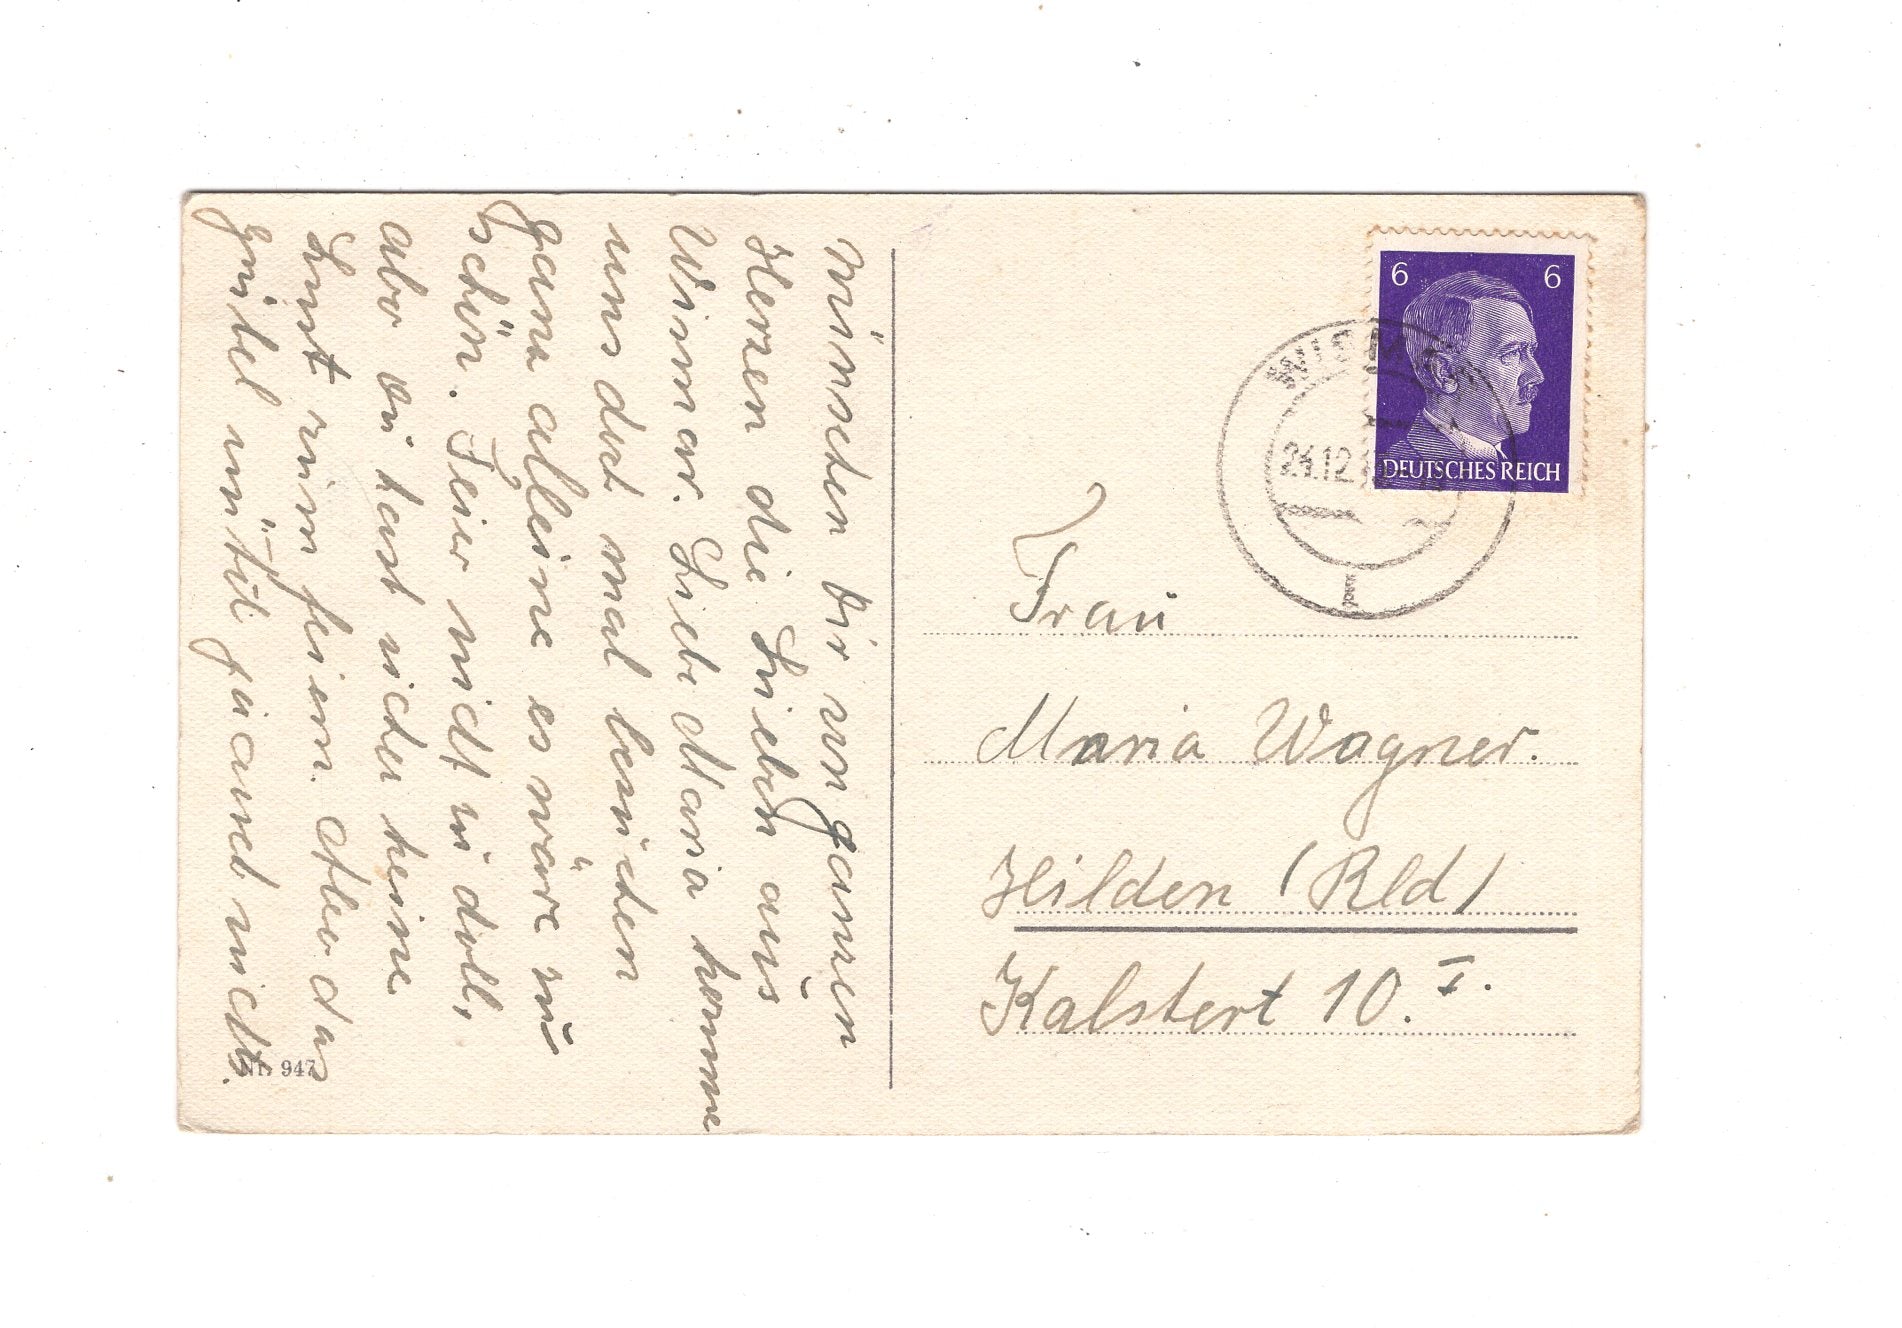 wünschen Dir von ganzen
Herzen die Lieben aus
Wismar. Liebe Maria komme
uns doch mal besuchen
ganz alleine es wäre zu
schön. Feier nicht zu doll,
abo du hast sicher keine
Lust zum feiern. Also das
Grübel nützt ja auch nichts.
Nr. 947
6 6
DEUTSCHES REICH
WISMAR
24.12
Frau
Maria Wagner.
Hilden (Rld)
Kalstert 10. I.